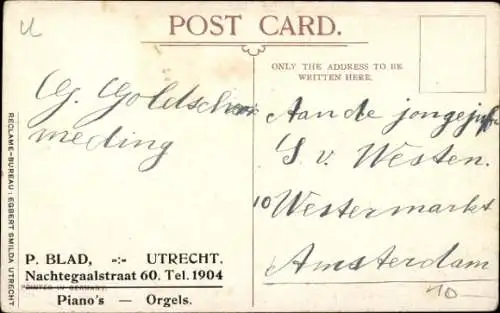 POST CARD.
ONLY THE ADDRESS TO BE
WRITTEN HERE.
G. Goldsch
meding
Aan de jongejuf
S v. Westen.
10 Westermarkt
Amsterdam
10
P. BLAD, -:- UTRECHT.
Nachtegaalstraat 60. Tel. 1904
PRINTED IN GERMANY.
Piano's — Orgels.
RECLAME-BUREAU: EGBERT SMILDA UTRECHT